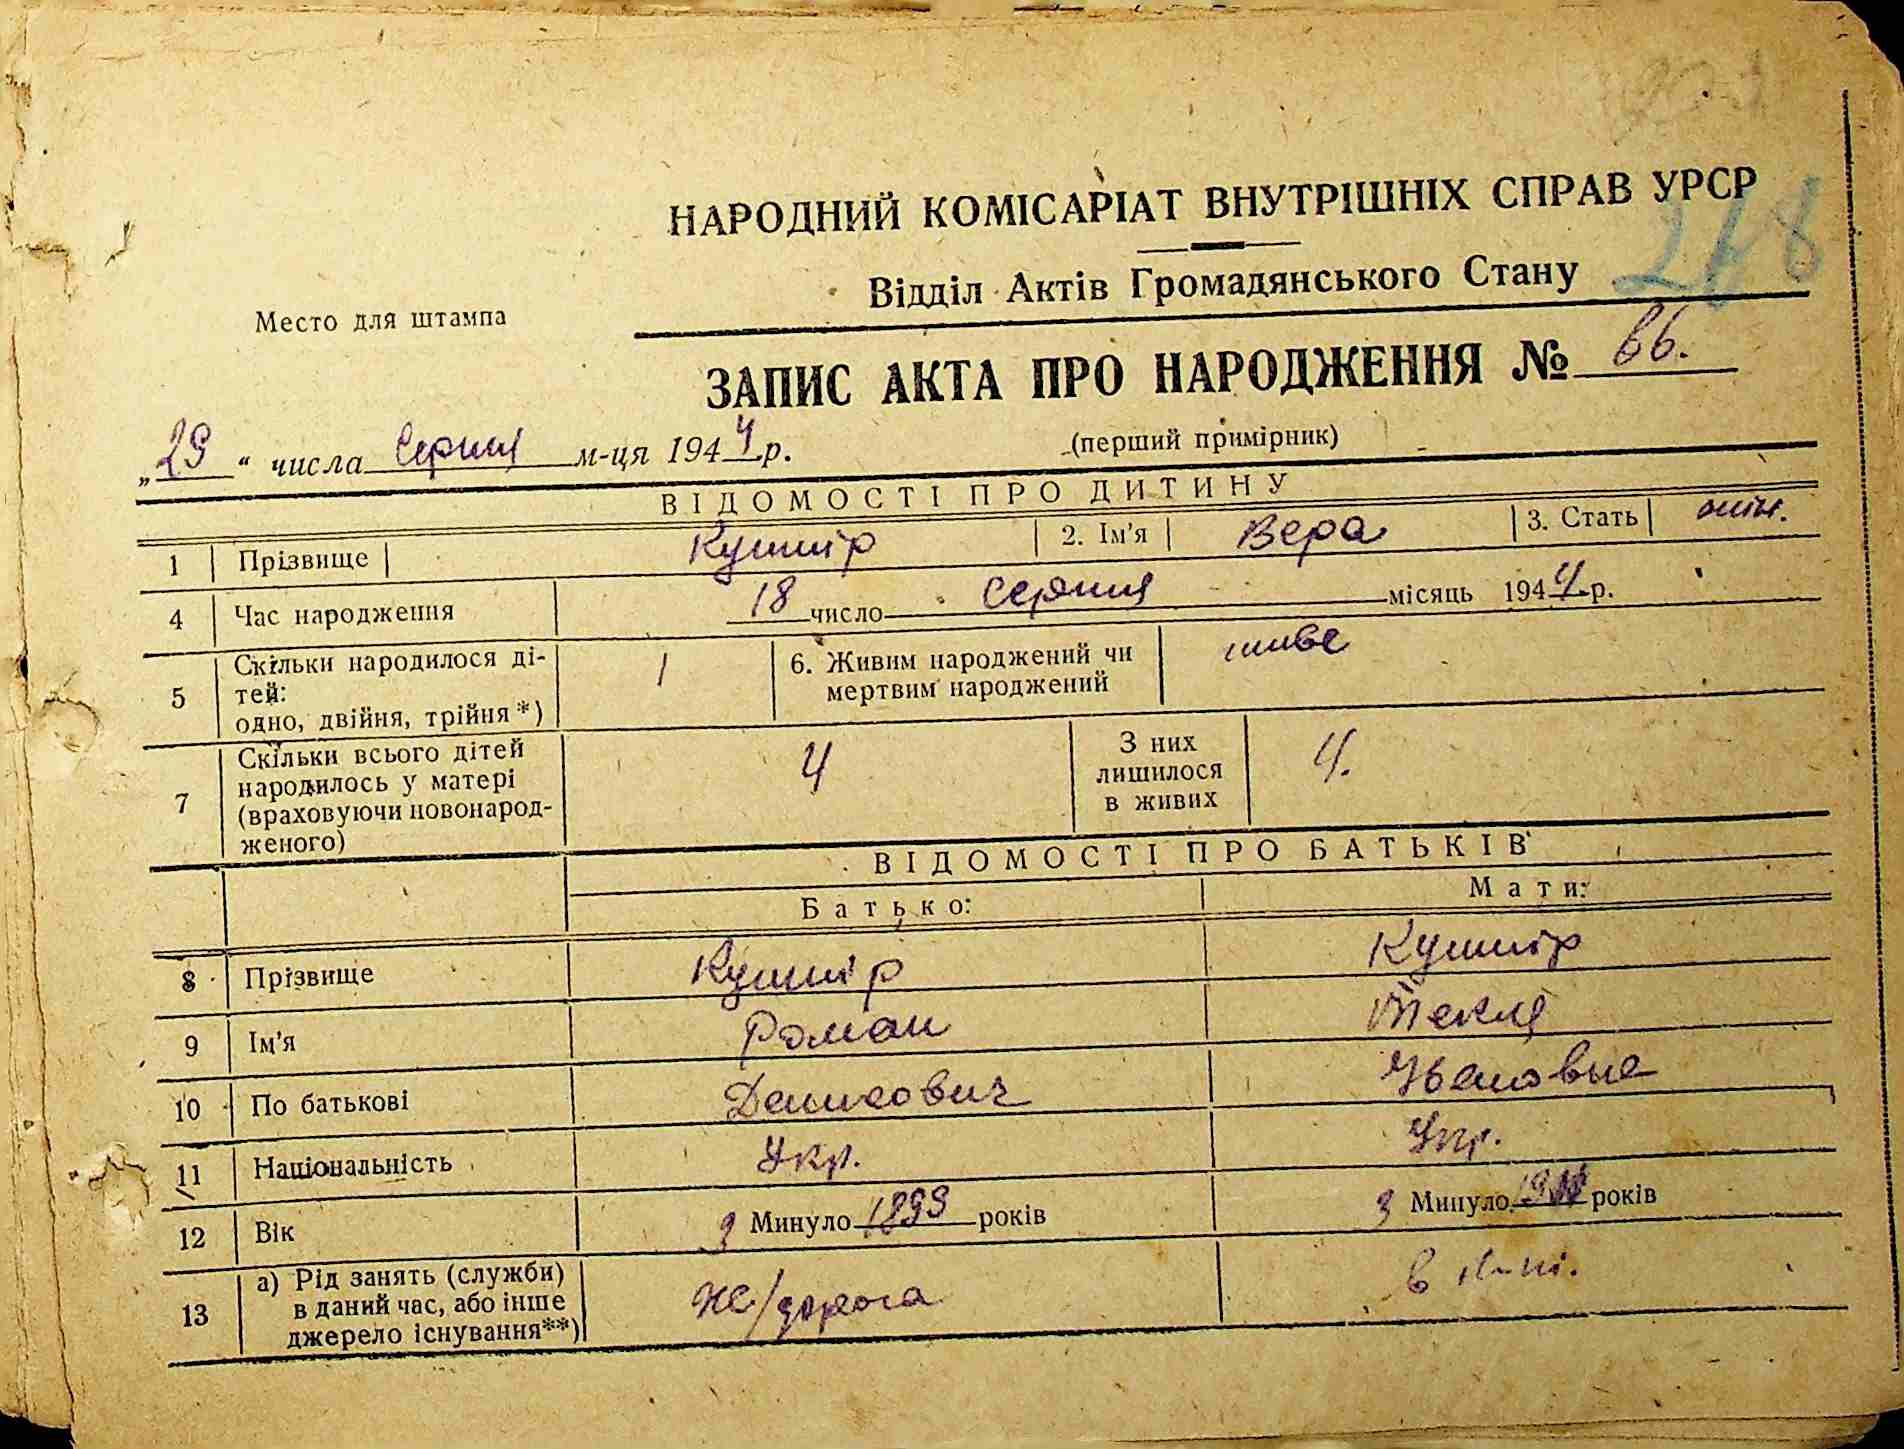 НАРОДНИЙ КОМІСАРІАТ ВНУТРІШНІХ СПРАВ УРСР
278
Відділ Актів Громадянського Стану
Место для штампа
ЗАПИС АКТА ПРО НАРОДЖЕННЯ № 66.
„29“ числа Серпня м-ця 1944 р. (перший примірник)
ВІДОМОСТІ ПРО ДИТИНУ
1 Прізвище Кушнір 2. Ім'я Вера 3. Стать жін.
4 Час народження 18 число серпня місяць 1944 р.
5 Скільки народилося ді-
тей:
одно, двійня, трійня*) 1 6. Живим народжений чи
мертвим народжений живе
7 Скільки всього дітей
народилось у матері
(враховуючи новонарод-
женого) 4 З них
лишилося
в живих 4.
ВІДОМОСТІ ПРО БАТЬКІВ
Батько: Мати:
8 Прізвище Кушнір Кушнір
9 Ім'я Роман Текля
10 По батькові Денисович Ивановна
11 Національність Укр. Укр.
12 Вік З Минуло 1899 років З Минуло років
13 а) Рід занять (служби)
в даний час, або інше
джерело існування**) Же/дорога в